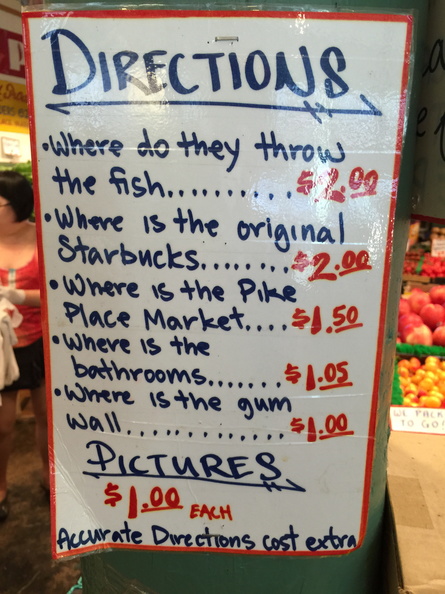 DIRECTIONS
•Where do they throw
the fish.......... $2.00
•Where is the original
Starbucks....... $2.00
•Where is the Pike
Place Market.... $1.50
•Where is the
bathrooms....... $1.05
•Where is the gum
wall............. $1.00
PICTURES
$1.00 EACH
Accurate Directions cost extra
WE PACK
TO GO!